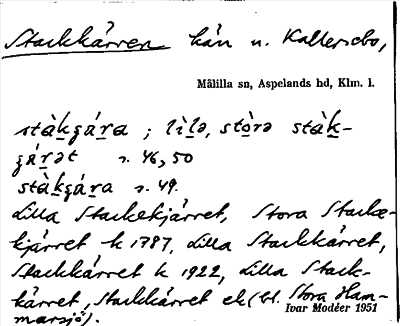 Stackkärren kän n. Kallersebo,
Målilla sn, Aspelands hd, Klm. l.
stàkʒára; lìlə, stòrə stàk-
ʒárət s. 46, 50
stàkʒára s. 49.
Lilla Stackekjärret, Stora Stacke-
kjärret k 1787, Lilla Stackkärret,
Stackkärret k 1922, Lilla Stack-
kärret, Stackkärret ek (bl. Stora Ham-
marsjö).
Ivar Modéer 1951